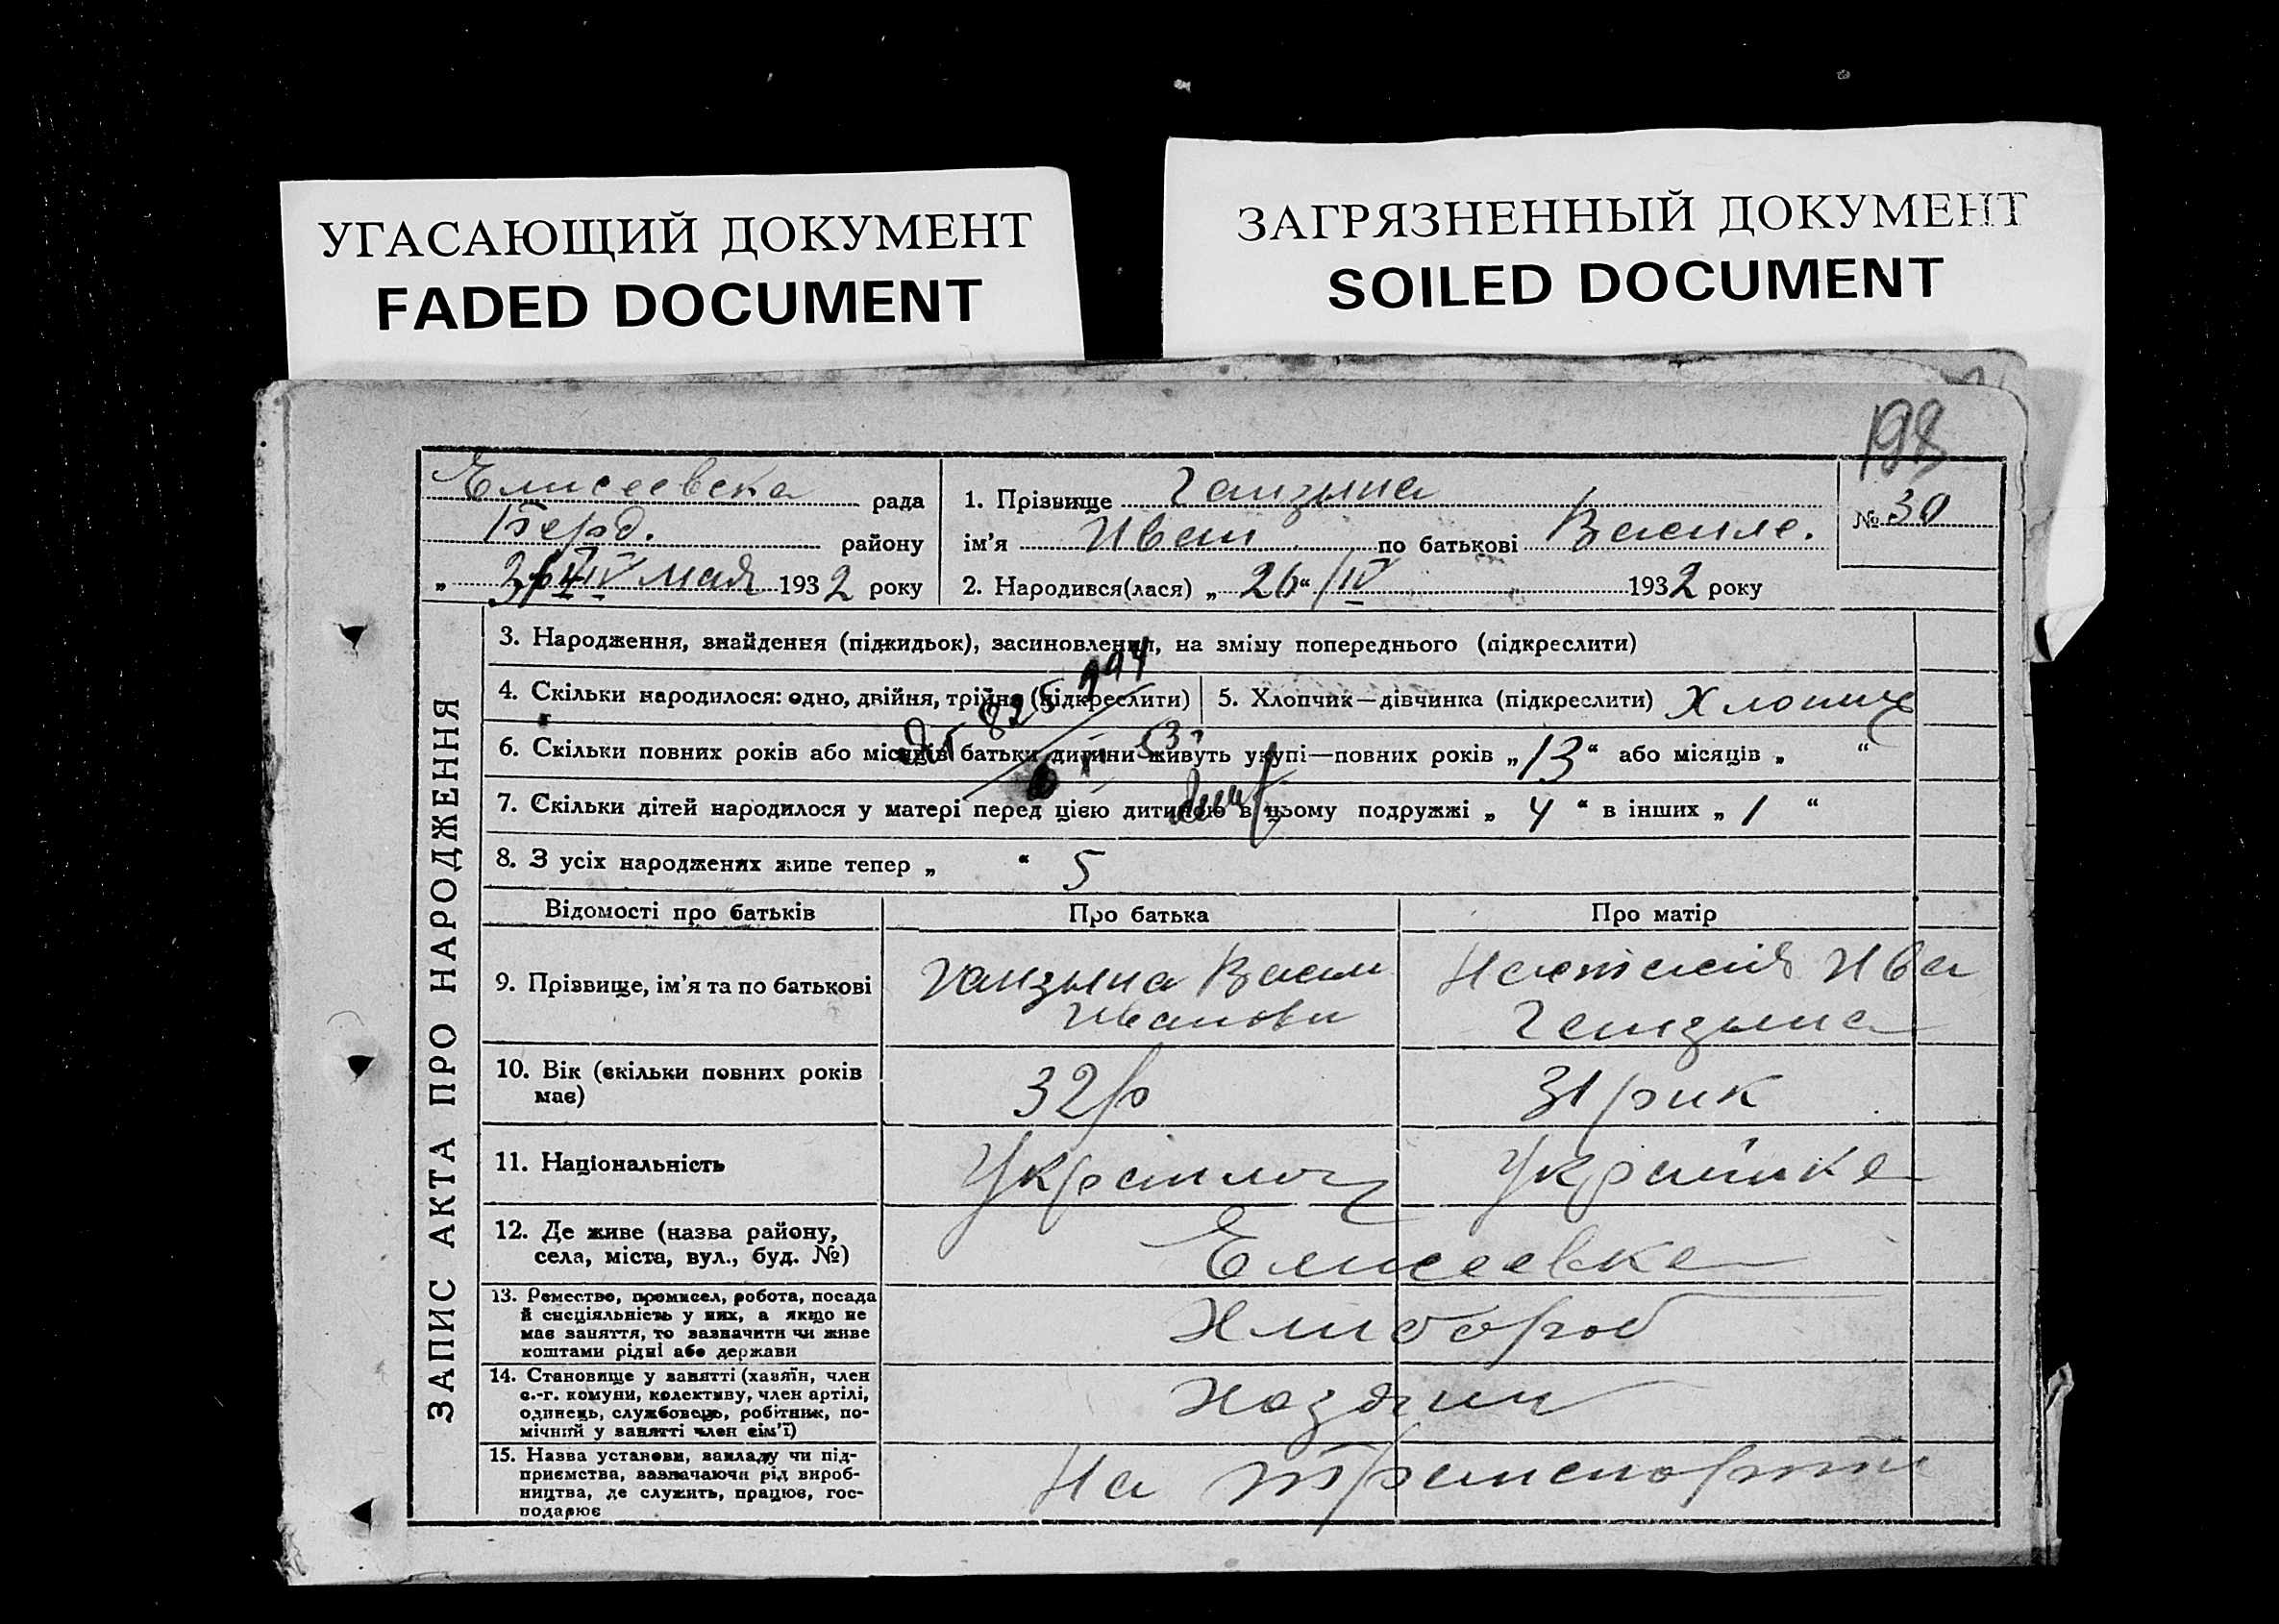 УГАСАЮЩИЙ ДОКУМЕНТ
FADED DOCUMENT
ЗАГРЯЗНЕННЫЙ ДОКУМЕНТ
SOILED DOCUMENT
198
Елисеевска рада
Берд. району
мая 1932 року
1. Прізвище Ганзына
ім'я Иван по батькові Василе.
2. Народився(лася) „26“ IV 1932 року
№ 30
ЗАПИС АКТА ПРО НАРОДЖЕННЯ
3. Народження, знайдення (підкидьок), засиновлення, на зміну попереднього (підкреслити)
4. Скільки народилося: одно, двійня, трійня (підкреслити)
5. Хлопчик—дівчинка (підкреслити) Хлопиц
6. Скільки повних років або місяців батьки дитини живуть укупі—повних років „13“ або місяців „ “
7. Скільки дітей народилося у матері перед цією дитиною в цьому подружжі „ 4 “ в інших „ 1 “
8. З усіх народжених живе тепер „ “ 5
Відомості про батьків Про батька Про матір
9. Прізвище, ім'я та по батькові
Ганзына Васил
Иванови
Настасия Ива
Ганзына
10. Вік (скільки повних років
має)
32 р
31 рик
11. Національність
Украинец
Украинка
12. Де живе (назва району,
села, міста, вул., буд. №)
Елисеевка
13. Ремество, промисел, робота, посада
й спеціяльність у них, а якщо не
має заняття, то зазначити чи живе
коштами рідні або держави
Хлибороб
14. Становище у занятті (хазяїн, член
с.-г. комуни, колективу, член артілі,
одинець, службовець, робітник, по-
мічний у занятті член сім'ї)
Хозяин
15. Назва установи, закладу чи під-
приємства, зазначаючи рід вироб-
ництва, де служить, працює, гос-
подарює
На транспорти